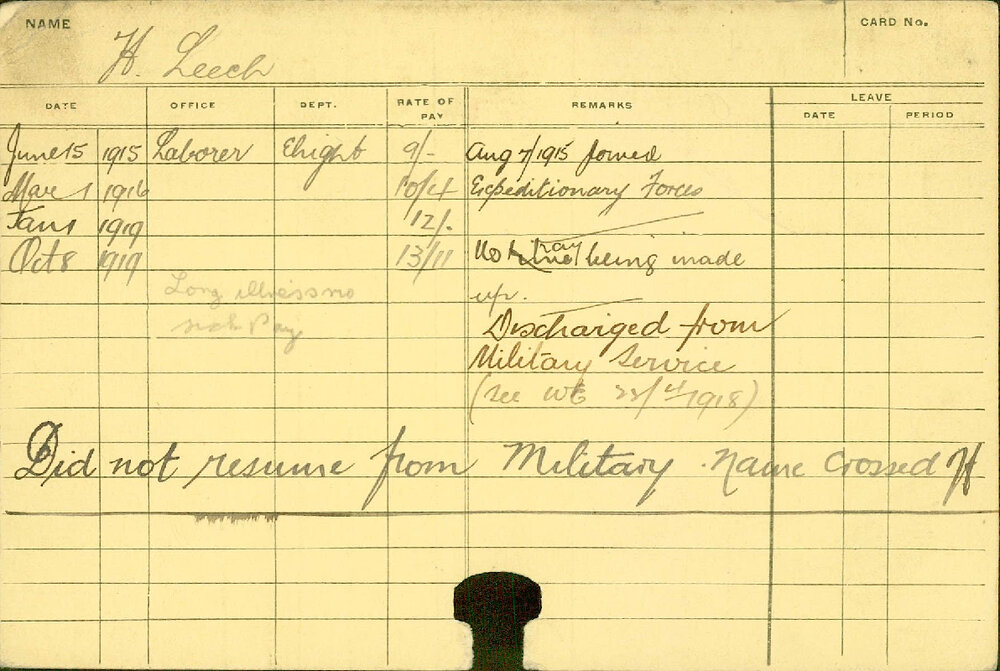 NAME
CARD No.
H. Leech
DATE OFFICE DEPT. RATE OF PAY REMARKS LEAVE
DATE PERIOD
June 15 1915 Laborer Ehight 9/- Aug 7/1915 Joined
Mar 1 1916 10/4 Expeditionary Forces
Jan 1 1919 12/-
Oct 8 1919 13/11 No pay being made
up.
Long illness no
sick Pay
Discharged from
Military Service
(See WE /4/1918)
Did not resume from Military. Name Crossed